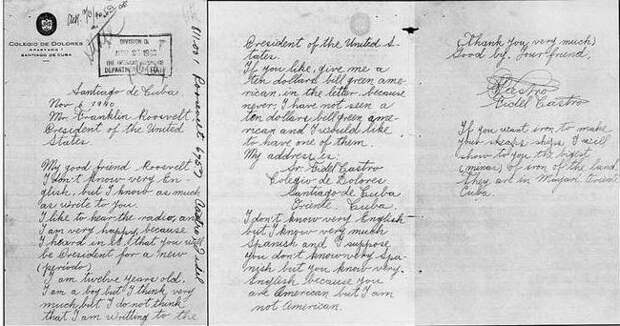 COLEGIO DE DOLORES
APARTADO 1
SANTIAGO DE CUBA
DIVISION
DEPARTMENT OF
Santiago de Cuba
Nov 6 1940
Mr. Franklin Roosvelt,
President of the United
States.
My good friend Roosvelt
I don't know very En-
glish, but I know as much
as write to you.
I like to hear the radio, and
I am very happy, because
I heard in it, that you will
be President for a new
(periodo)
I am twelve years old.
I am a boy but I think very
much but I do not think
that I am writting to the
President of the United S-
tates.
If you like, give me a
ten dollars bill green ame-
rican, in the letter, because
never, I have not seen a
ten dollars bill green ame-
rican and I would like
to have one of them.
My address is:
Sr. Fidel Castro
Colegio de Dolores
Santiago de Cuba
Oriente, Cuba.
I don't know very English
but I know very much
Spanish and I suppose
you don't know very Spa-
nish but you know very
English because you
are American but I am
not American.
(Thank you very much)
Good by. Your friend,
Castro
Fidel Castro
If you want iron to make
your sheaps ships I will
show to you the bigest
(minas) of iron of the land.
They are in Mayari Oriente
Cuba.